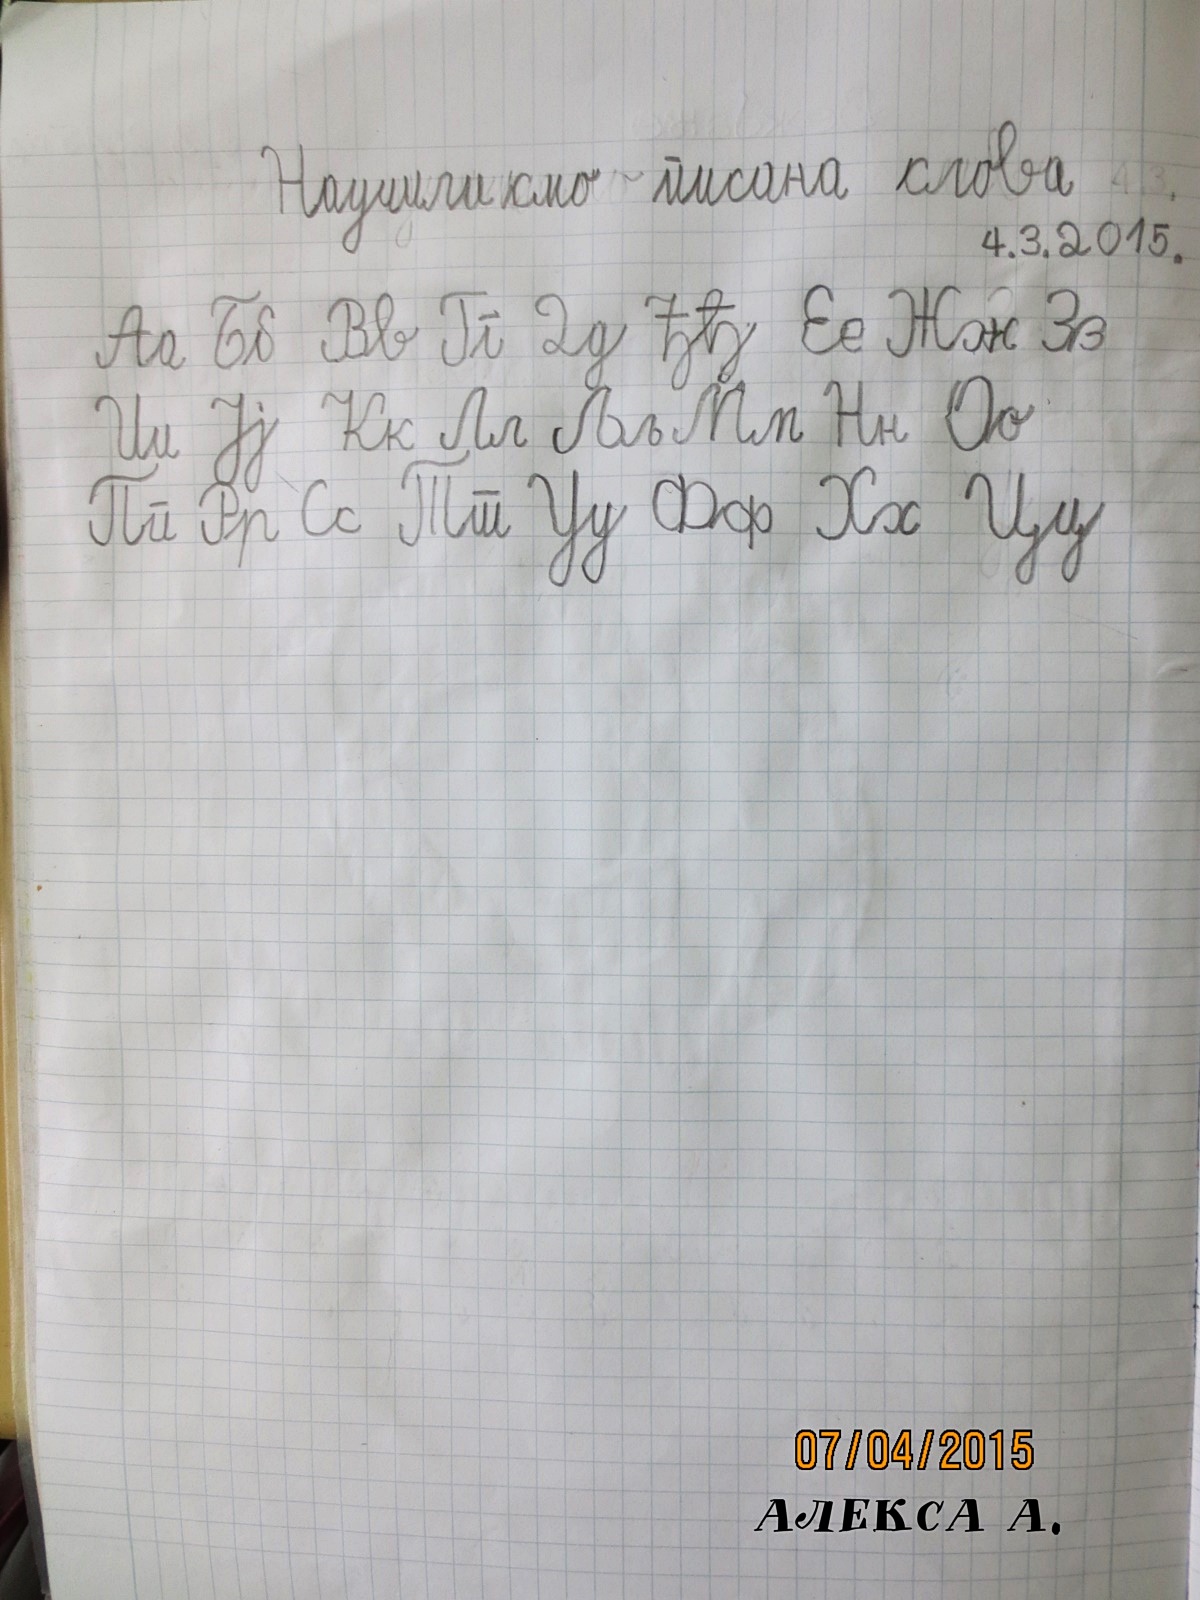 Научили смо писана слова
4.3.2015.
Аа Бб Вв Гг Дд Ђђ Ее Жж Зз
Ии Јј Кк Лл Љљ Мм Нн Оо
Пп Рр Сс Тт Уу Фф Хх Цц
07/04/2015
АЛЕКСА А.